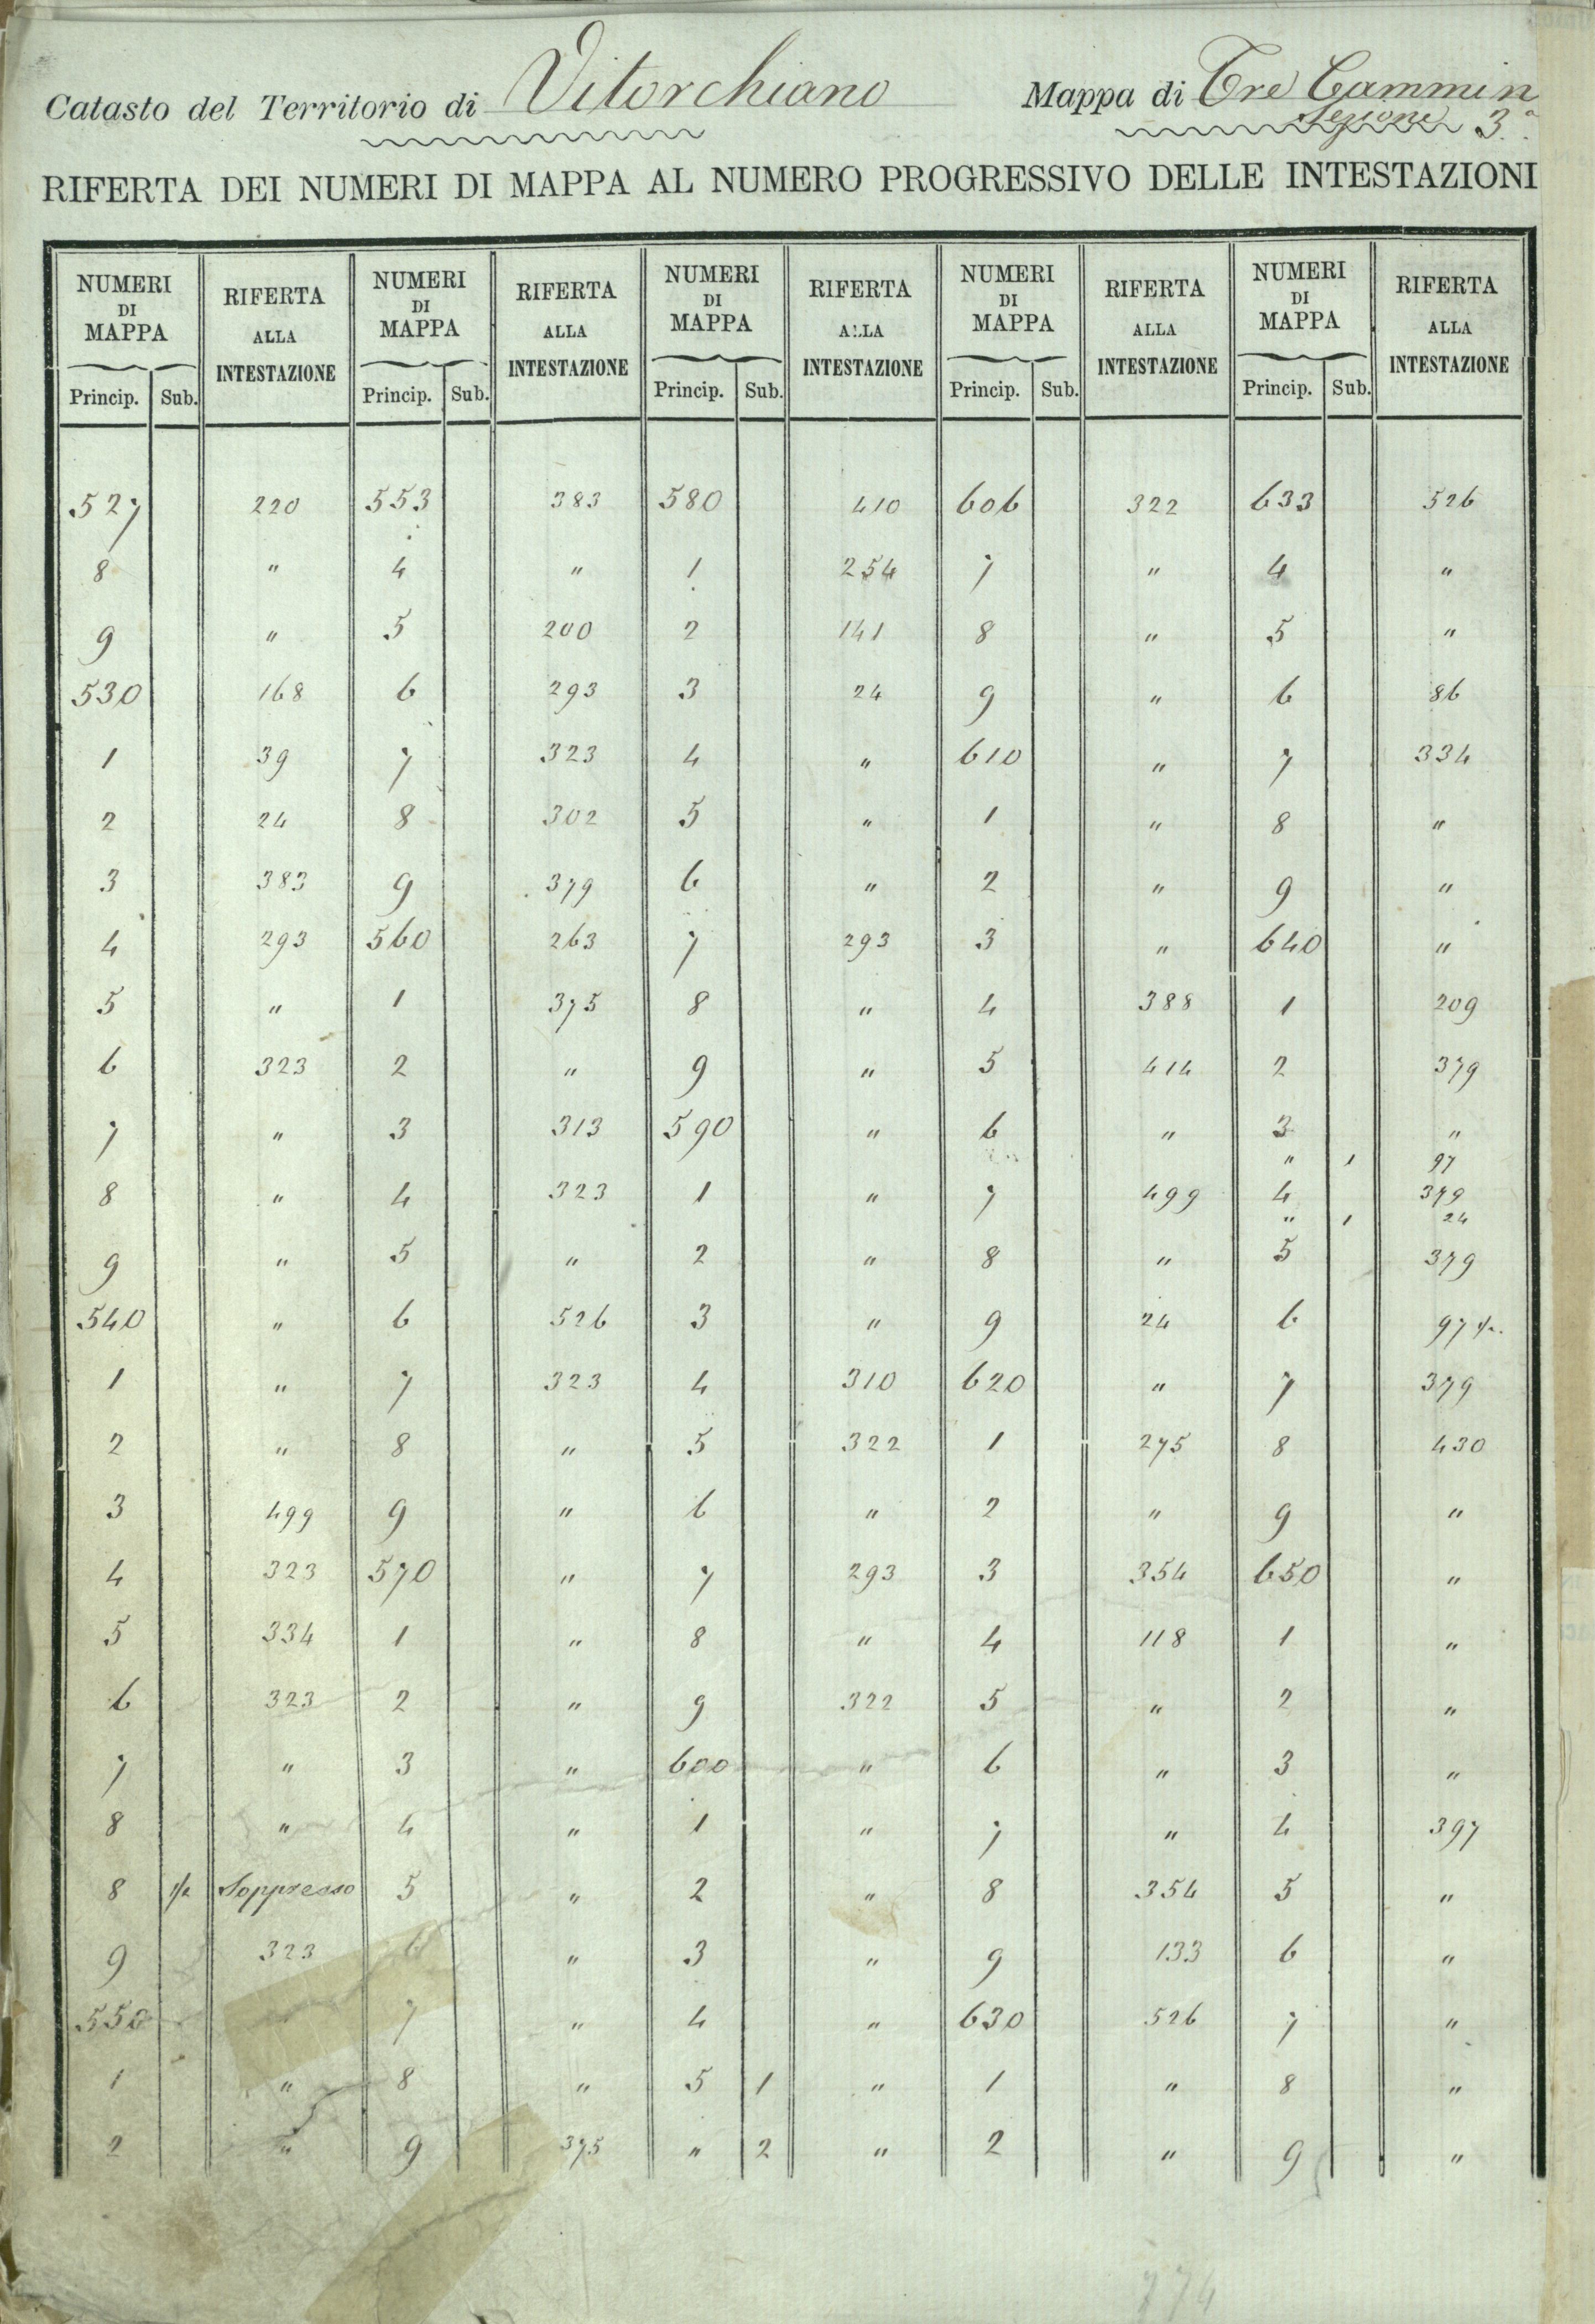 Catasto del Territorio di Vitorchiano Mappa di Tre Cammin
Sezione 3.ª
RIFERTA DEI NUMERI DI MAPPA AL NUMERO PROGRESSIVO DELLE INTESTAZIONI
NUMERI DI MAPPA RIFERTA ALLA INTESTAZIONE NUMERI DI MAPPA RIFERTA ALLA INTESTAZIONE NUMERI DI MAPPA RIFERTA ALLA INTESTAZIONE NUMERI DI MAPPA RIFERTA ALLA INTESTAZIONE NUMERI DI MAPPA RIFERTA ALLA INTESTAZIONE
Princip. Sub. Princip. Sub. Princip. Sub. Princip. Sub. Princip. Sub.
527 220 553 383 580 410 606 322 633 526
8 " 4 " 1 254 7 " 4 "
9 " 5 200 2 141 8 " 5 "
530 168 6 293 3 24 9 " 6 86
1 39 7 323 4 " 610 " 7 334
2 24 8 302 5 " 1 " 8 "
3 383 9 379 6 " 2 " 9 "
4 293 560 263 7 293 3 " 640 "
5 " 1 375 8 " 4 388 1 209
6 323 2 " 9 " 5 414 2 379
7 " 3 313 590 " 6 " 3 "
" 1 97
8 " 4 323 1 " 7 499 4 379
" 1 24
9 " 5 " 2 " 8 " 5 379
540 " 6 526 3 " 9 24 6 97 1/2
1 " 7 323 4 310 620 " 7 379
2 " 8 " 5 322 1 275 8 430
3 499 9 " 6 " 2 " 9 "
4 323 570 " 7 293 3 354 650 "
5 334 1 " 8 " 4 118 1 "
6 323 2 " 9 322 5 " 2 "
7 " 3 " 600 " 6 " 3 "
8 " 4 " 1 " 7 " 4 397
8 1/2 Soppresso 5 " 2 " 8 354 5 "
9 323 6 " 3 " 9 133 6 "
550 " 7 " 4 " 630 526 7 "
1 " 8 " 5 1 " 1 " 8 "
2 " 9 375 " 2 " 2 " 9 "
774